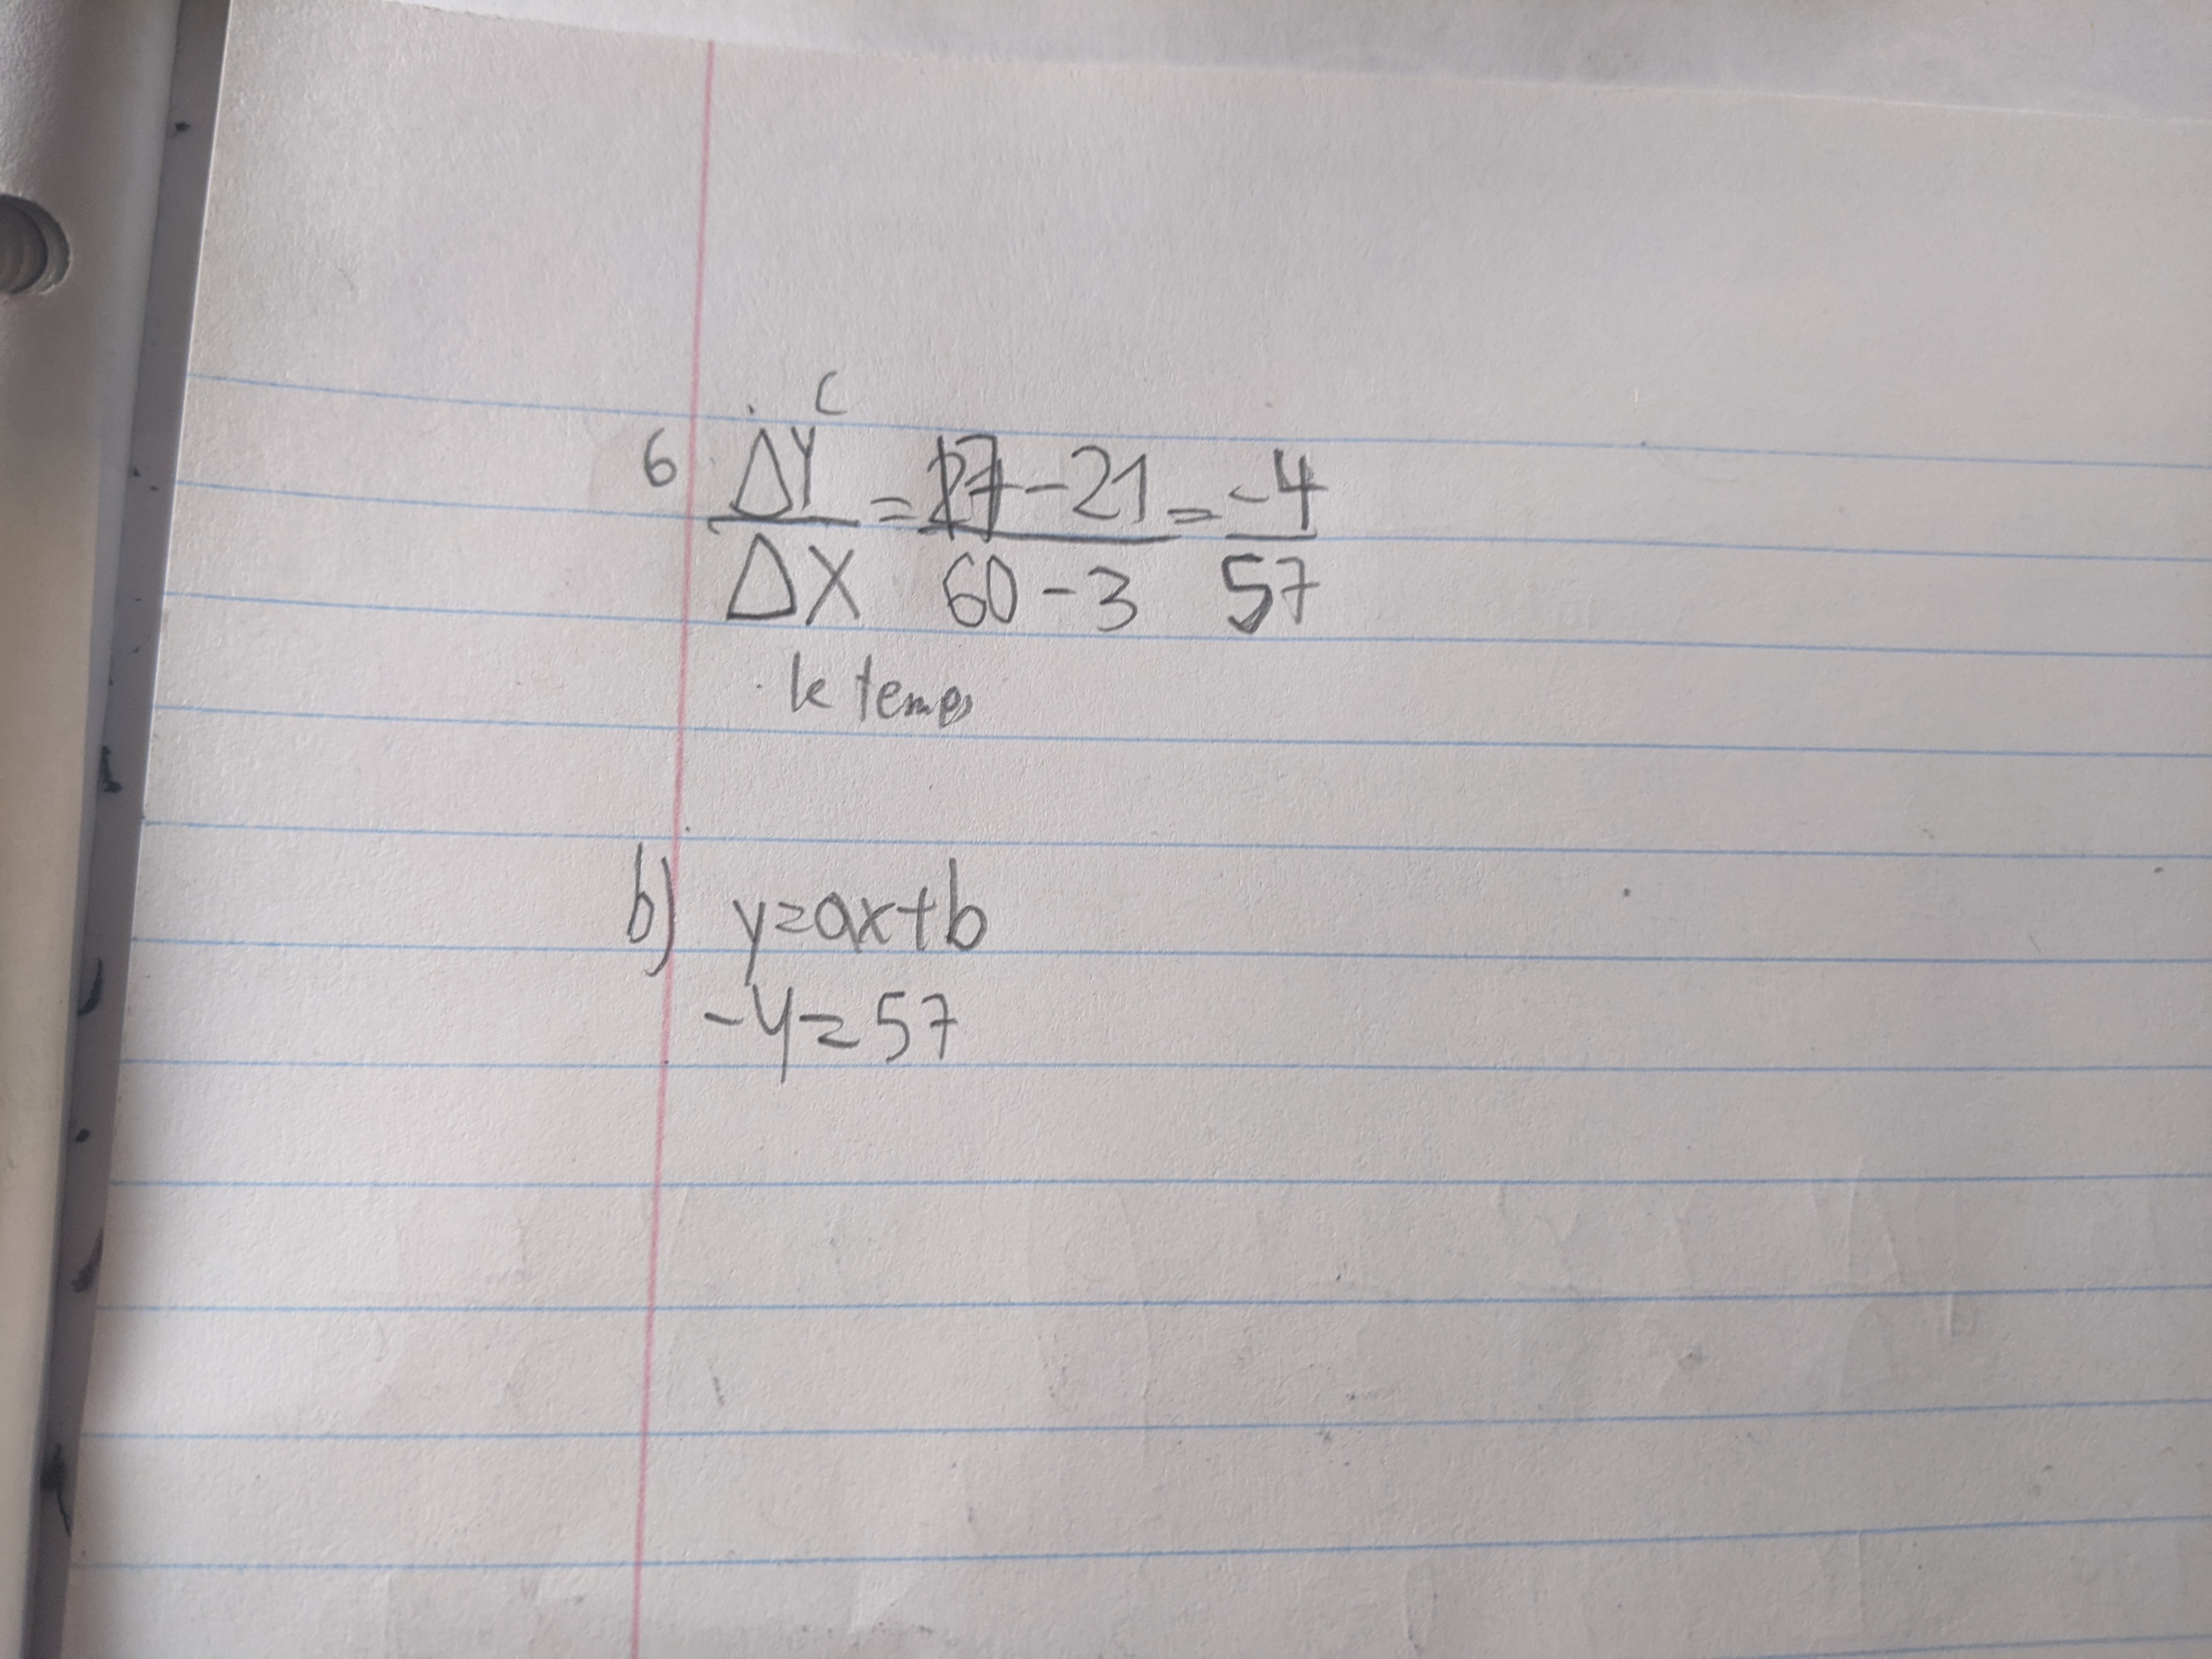 C
6 ΔY/ΔX = 17-21/60-3 = -4/57
k temps
b) y=ax+b
-y=57